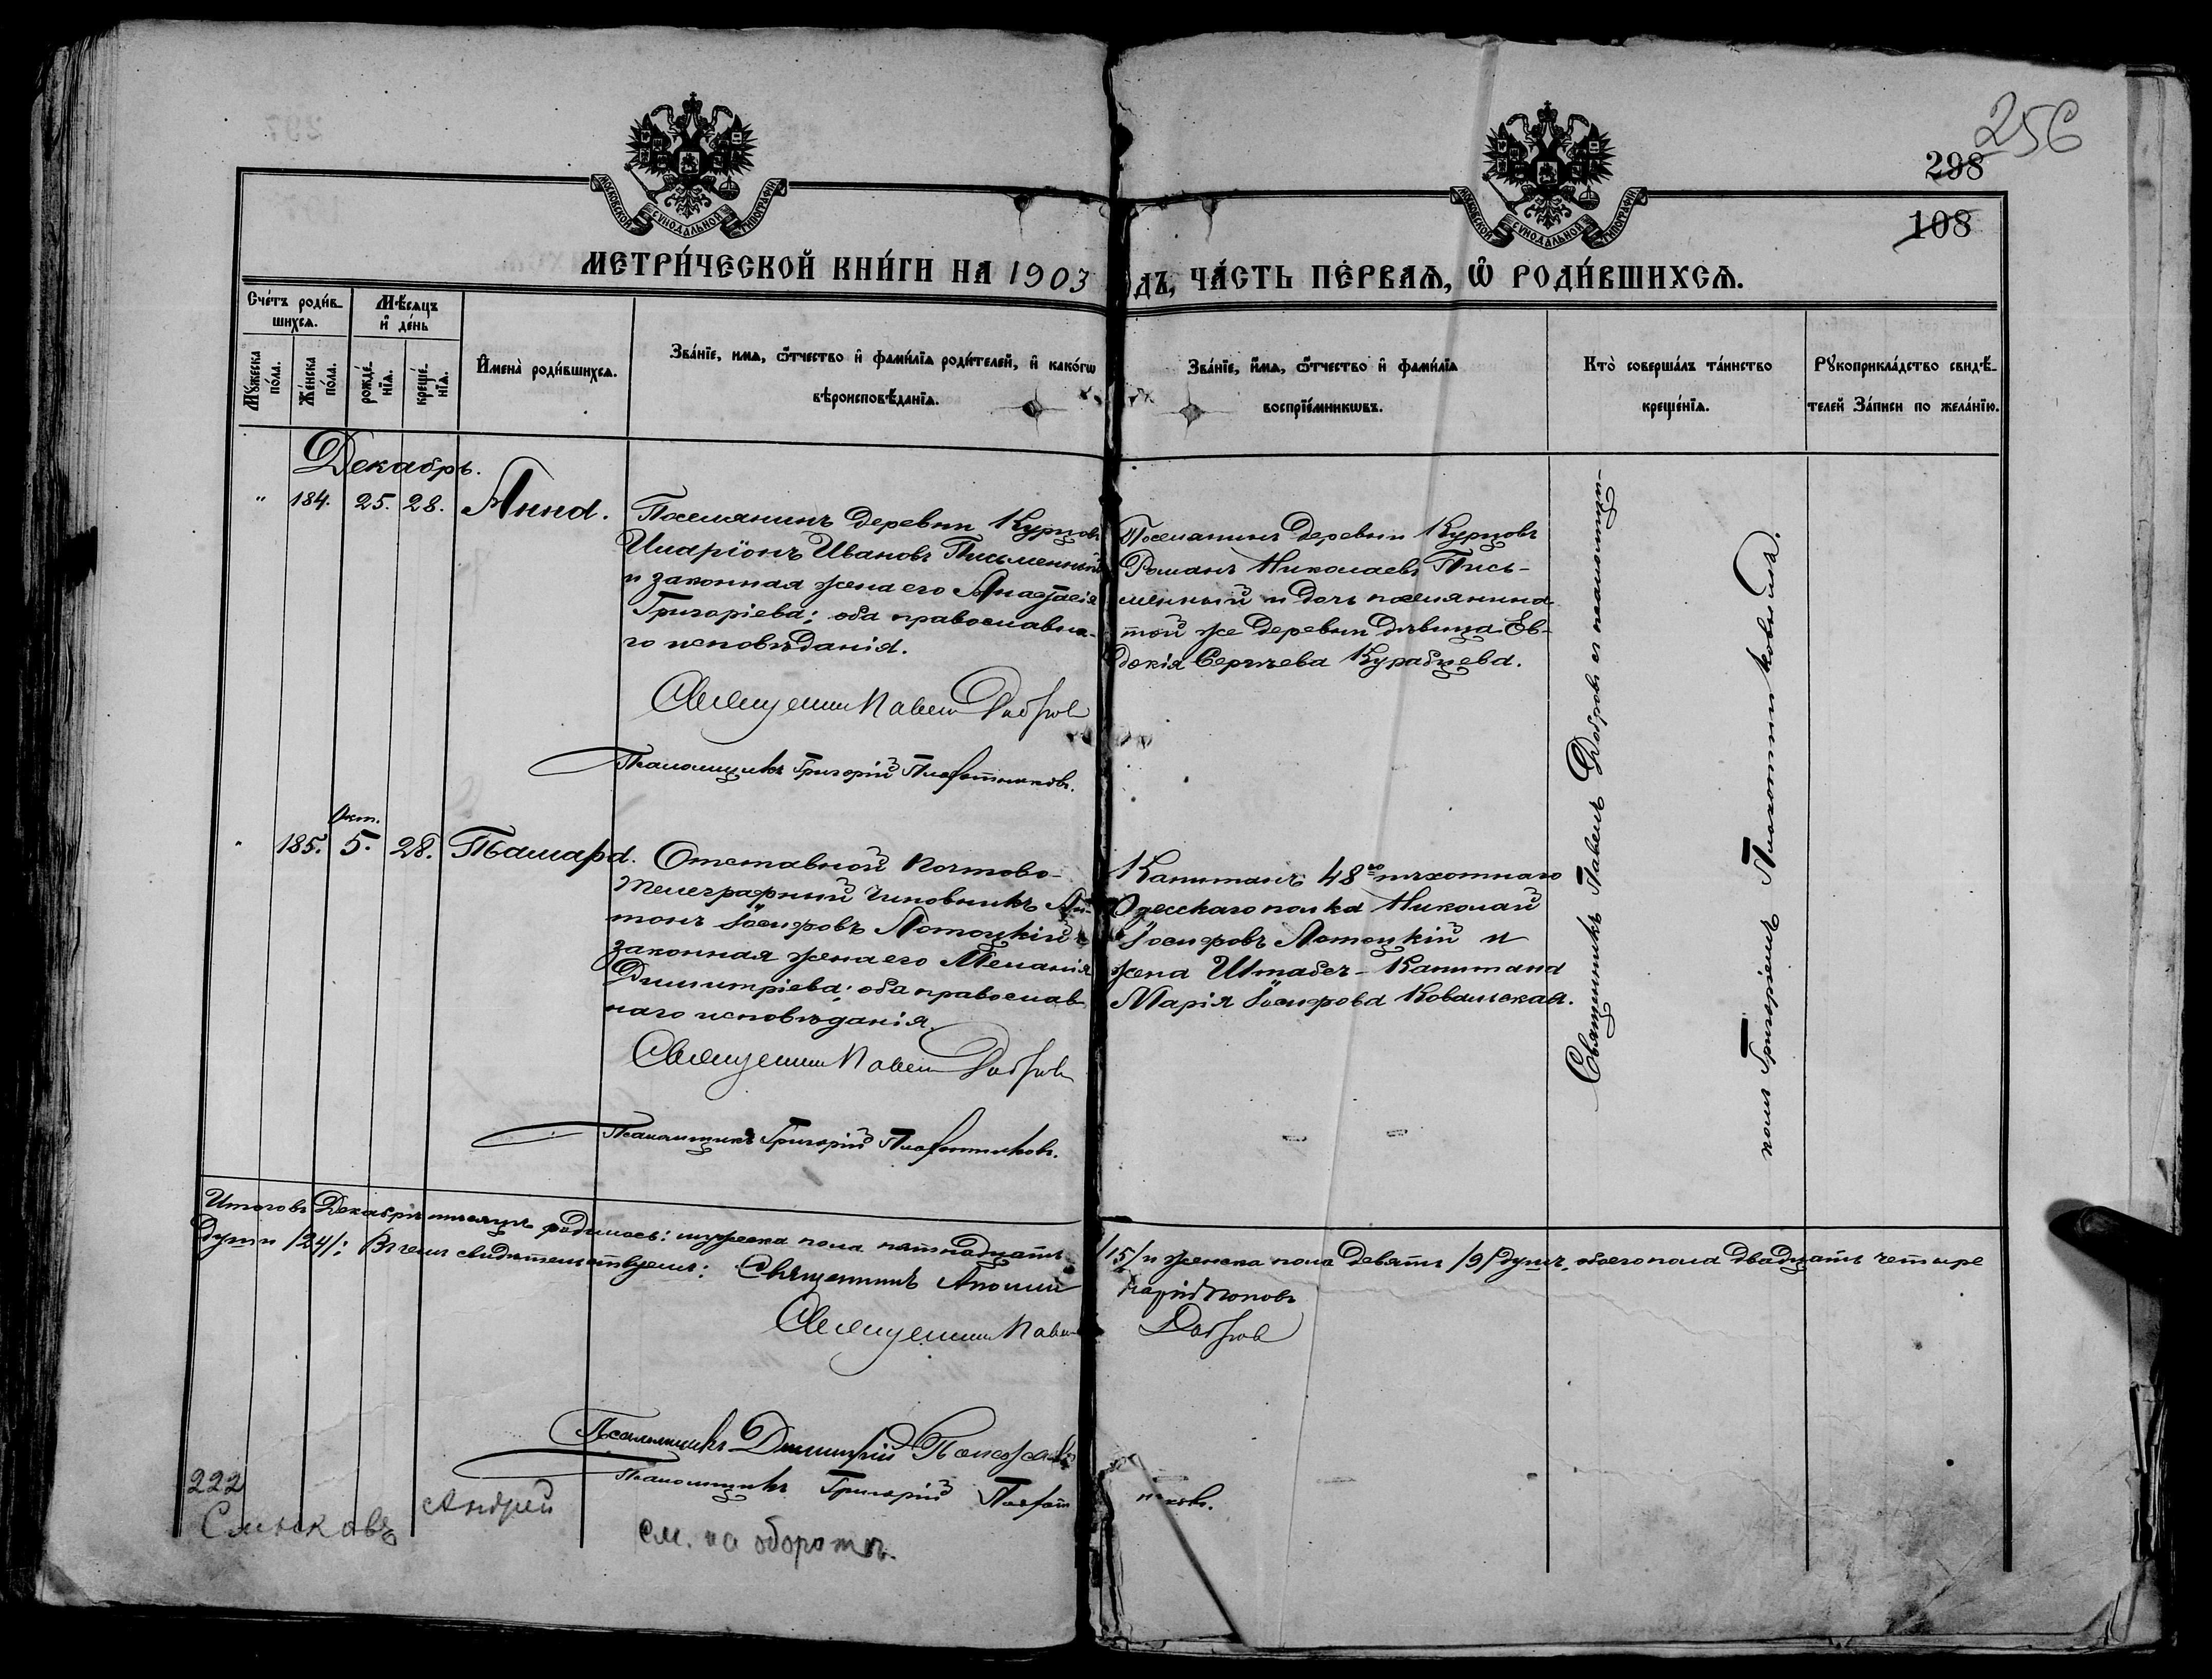 256
298
108
МОСКОВСКОЙ СУНОДАЛЬНОЙ ТИПОГРАФІИ
МОСКОВСКОЙ СУНОДАЛЬНОЙ ТИПОГРАФІИ
МЕТРИ́ЧЕСКОЙ КНИ́ГИ НА 1903
дъ, ЧА́СТЬ ПЕ́РВАѦ, Ѿ РОДИ́ВШИХСѦ.
Сче́тъ роди́в-
шихсѧ.
Мѣ́сѧцъ
и҆ де́нь
Мꙋ́жеска
по́ла.
Же́нска
по́ла.
рожде́-
нїѧ.
креще́-
нїѧ.
И҆мена̀ роди́вшихсѧ.
Зва́нїе, имѧ, ѻ҆́тчество и҆ фами́лїѧ роди́телей, и҆ како́гѡ
вѣроисповѣ́данїѧ.
Зва́нїе, и҆́мѧ, ѻ҆́тчество и҆ фами́лїѧ
воспрїе́мникѡвъ.
Кто̀ соверша́лъ та́инство
креще́нїѧ.
Рꙋкоприкла́дство свидѣ́-
телей За́писи по жела́нїю.
Декабрь.
" 184. 25. 28. Анна.
Поселянинъ деревни Курцовъ
Иларіонъ Ивановъ Письменный
и законная жена его Анастасія
Григоріева; оба православна-
го исповѣданія.
Священникъ Павелъ Добровъ
Псаломщикъ Григорій Плотниковъ.
Поселянинъ деревни Курцовъ
Романъ Николаевъ Пись-
менный и дочь поселянина
той же деревни дѣвица Ев-
докія Сергѣева Курабцева.
Окт.
" 185. 5. 28. Тамара.
Отставной почтово-
телеграфный чиновникъ Ан-
тонъ Іосифовъ Лотоцкій и
законная жена его Меланія
Димитріева; оба православ-
наго исповѣданія.
Священникъ Павелъ Добровъ
Псаломщикъ Григорій Плотниковъ.
Капитанъ 48го пѣхотнаго
Одесскаго полка Николай
Іосифовъ Лотоцкій и
жена Штабсъ-Капитана
Марія Іосифова Ковальская.
Священникъ Павелъ Добровъ съ псаломщи-
комъ Григоріемъ Плотниковымъ.
Итого въ Декабрѣ мѣсяцѣ родилось: мужеска пола пятнадцать /15/ и женска пола девять /9/ душъ, обоего пола двадцать четыре
души /24/; Въ чемъ свидѣтельствуемъ: Священникъ Аполлинарій Поповъ
Священникъ Павелъ Добровъ
Псаломщикъ Димитрій
Псаломщикъ Григорій Плотниковъ.
222
Слюсковъ Андрей
см. на оборотѣ.